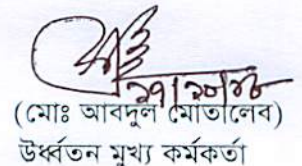 ২৭|১০|২৪
(মোঃ আবদুল মোতালেব)
উর্ধ্বতন মুখ্য কর্মকর্তা